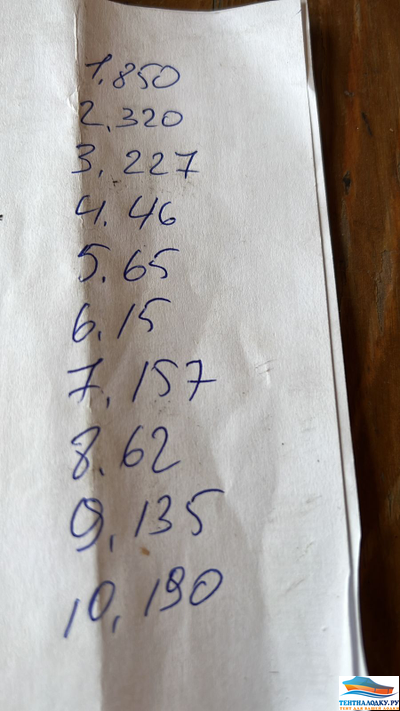 1. 850
2. 320
3. 227
4. 46
5. 65
6. 15
7. 157
8. 62
9. 135
10. 190
ТЕНТНАЛОДКУ.РУ
ТЕНТ ДЛЯ ВАШЕЙ ЛОДКИ